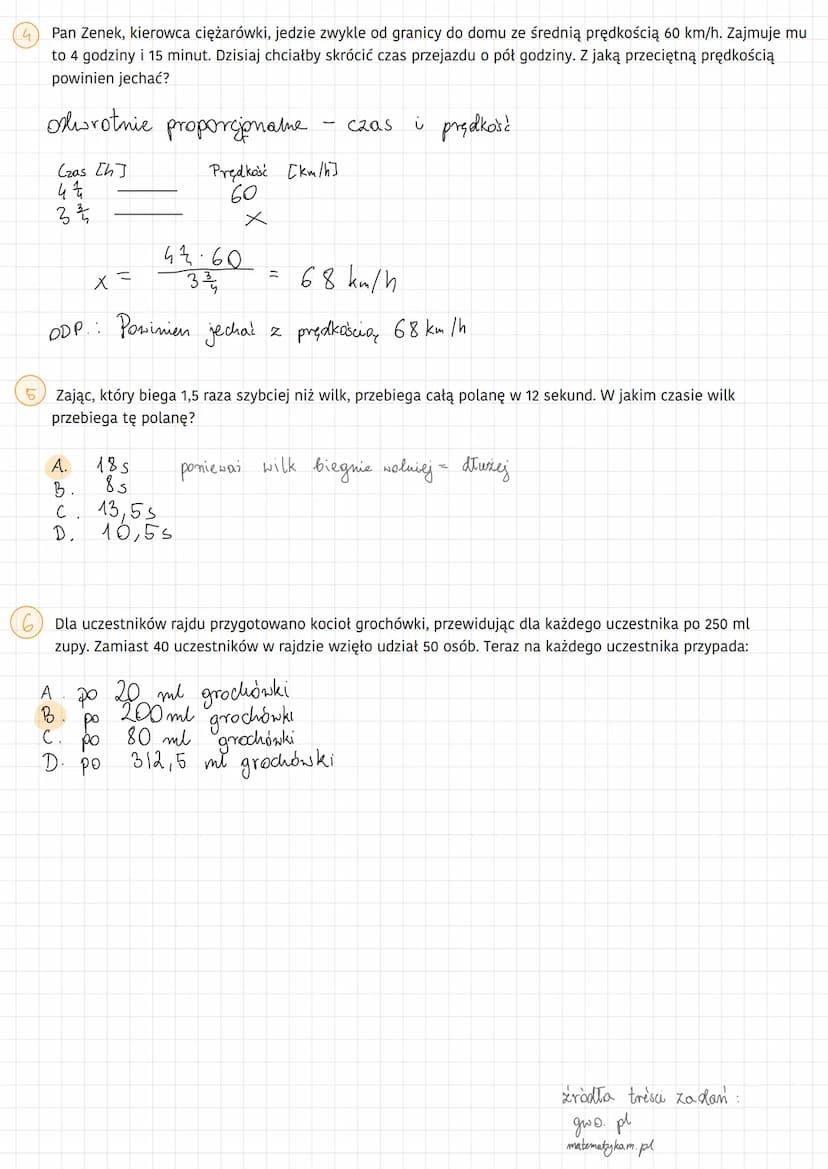 4 Pan Zenek, kierowca ciężarówki, jedzie zwykle od granicy do domu ze średnią prędkością 60 km/h. Zajmuje mu
to 4 godziny i 15 minut. Dzisiaj chciałby skrócić czas przejazdu o pół godziny. Z jaką przeciętną prędkością
powinien jechać?
odwrotnie proporcjonalne - czas i prędkość
Czas [h] Prędkość [km/h]
4 1/4 60
3 3/4 x
x = 4 1/4 · 60 / 3 3/4 = 68 km/h
ODP.: Powinien jechać z prędkością 68 km/h
5 Zając, który biega 1,5 raza szybciej niż wilk, przebiega całą polanę w 12 sekund. W jakim czasie wilk
przebiega tę polanę?
A. 18 s ponieważ wilk biegnie wolniej = dłużej
B. 8 s
C. 13,5 s
D. 10,5 s
6 Dla uczestników rajdu przygotowano kocioł grochówki, przewidując dla każdego uczestnika po 250 ml
zupy. Zamiast 40 uczestników w rajdzie wzięło udział 50 osób. Teraz na każdego uczestnika przypada:
A. po 20 ml grochówki
B. po 200 ml grochówki
C. po 80 ml grochówki
D. po 312,5 ml grochówki
źródła treści zadań:
gwo.pl
matematykam.pl